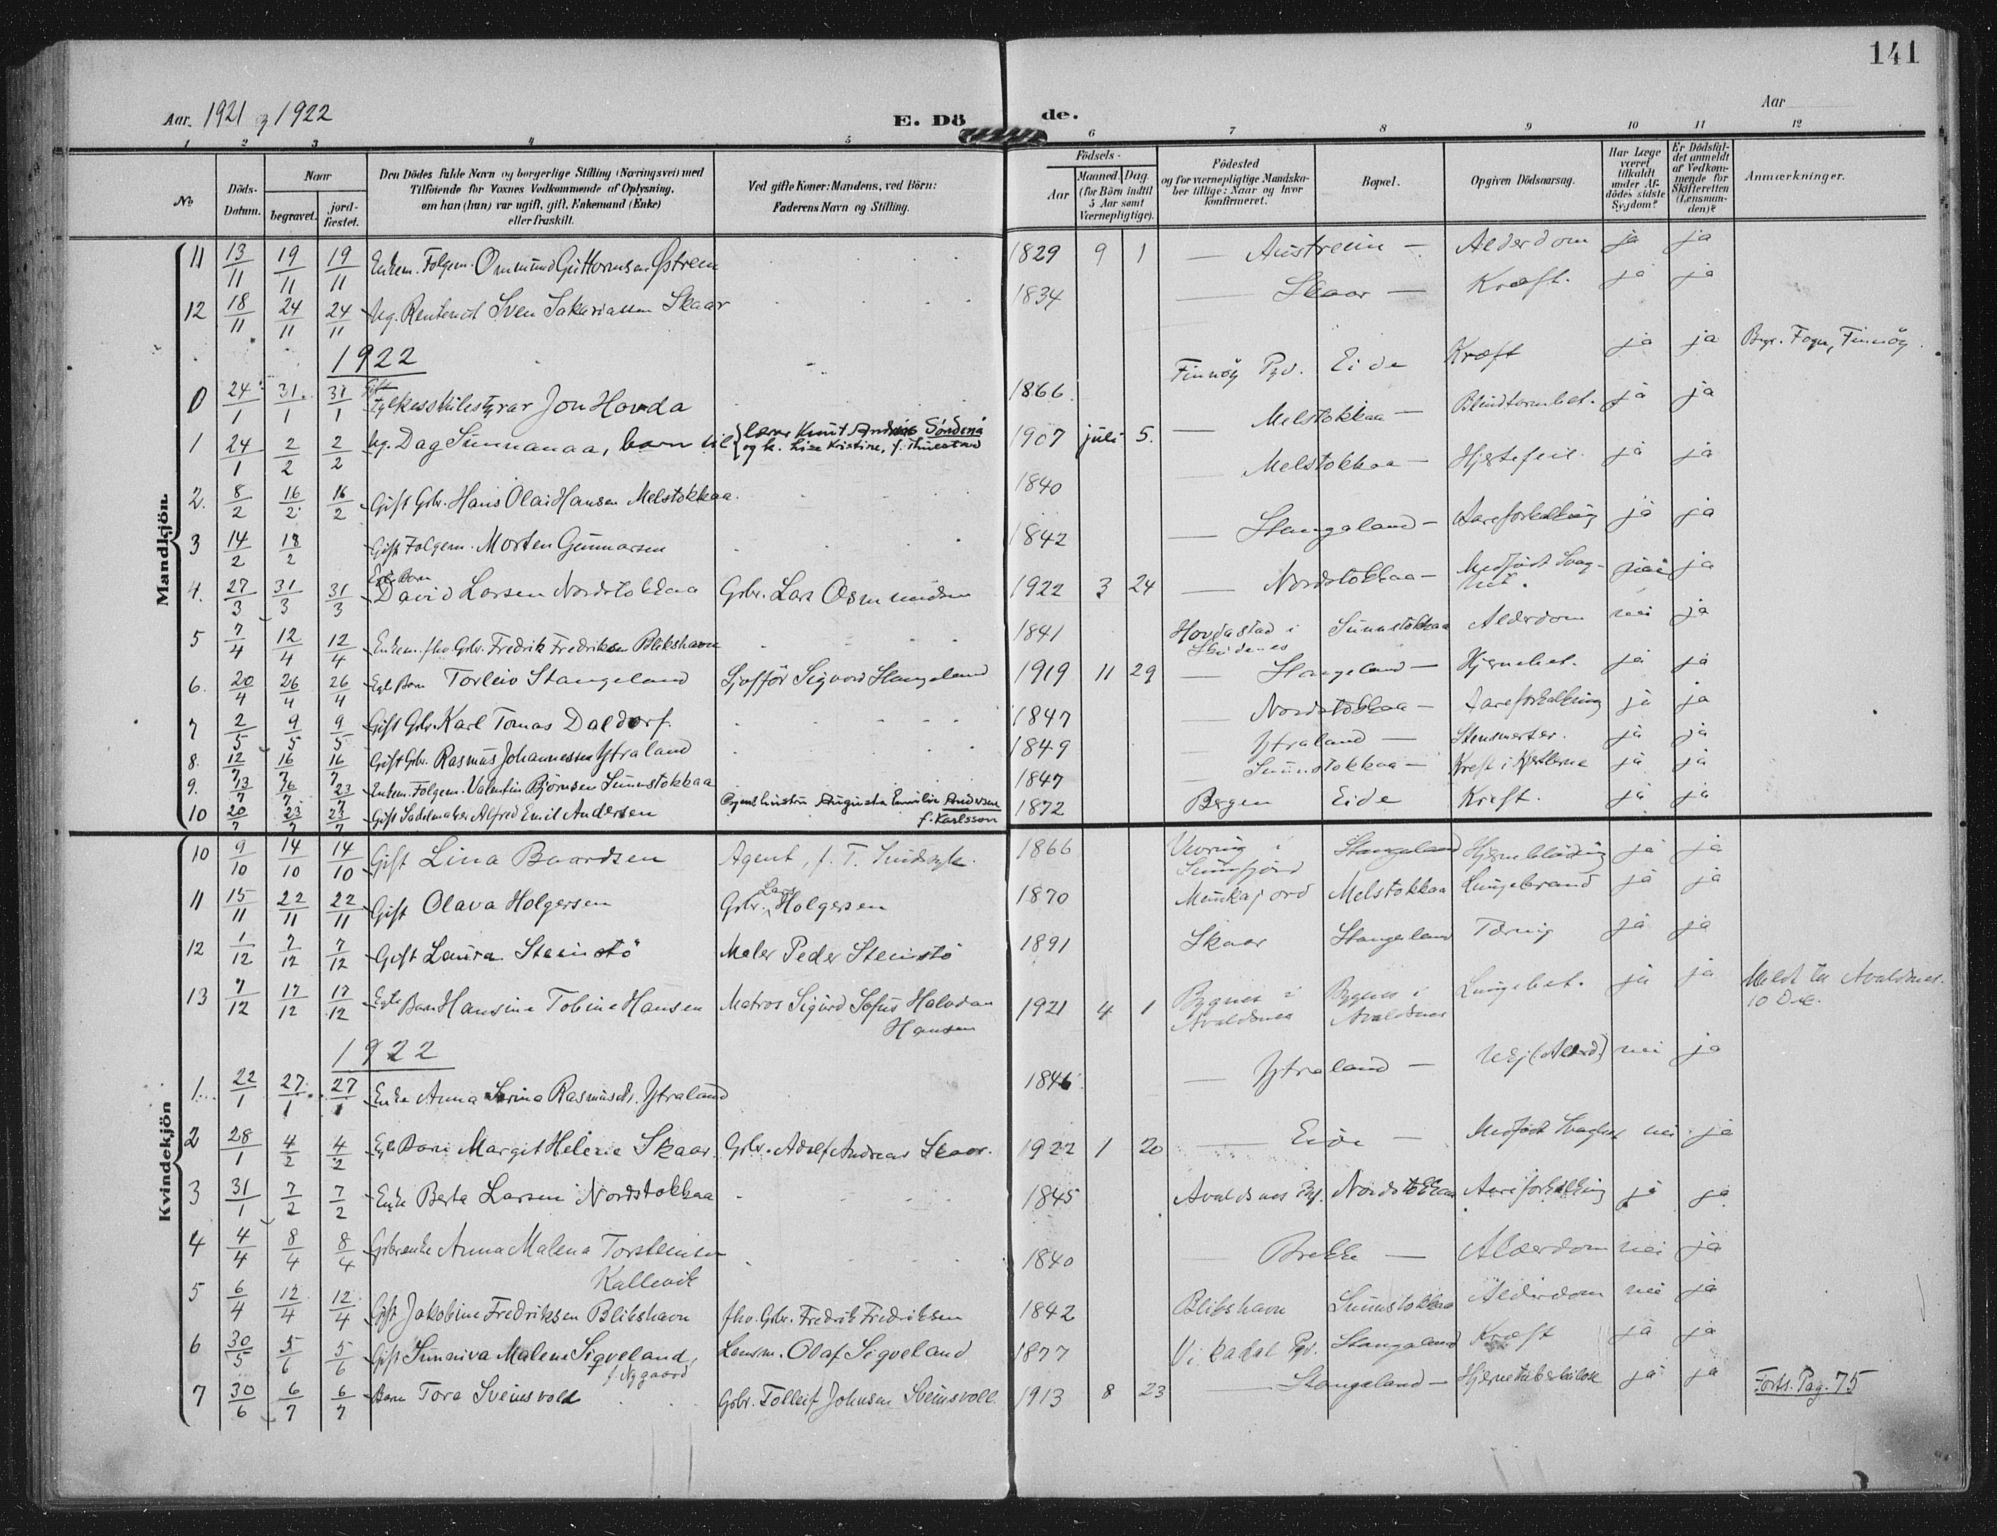 141
Aar. 1921 og 1922
E. Dö de.
Aar
1 2 3 4 5 6 7 8 9 10 11 12
No
Döds-Datum.
Naar
begravet.
jord-fæstet.
Den Dödes fulde Navn og borgerlige Stilling (Næringsvei) med
Tilföiende for Voxnes Vedkommende af Oplysning,
om han (hun) var ugift, gift, Enkemand (Enke)
eller fraskilt.
Ved gifte Koner: Mandens, ved Börn:
Faderens Navn og Stilling.
Födsels-
Aar
Maaned. Dag.
(for Börn indtil
5 Aar samt
Værnepligtige).
Födested
og for værnepligtige Mandska-
ber tillige: Naar og hvor
konfirmeret.
Bopæl.
Opgiven Dödsaarsag.
Har Læge
været
tilkaldt
under Af-
dödes sidste
Sygdom?
Er Dödsfal-
det anmeldt
af Vedkom-
mende for
Skifteretten
(Lensman-
den)?
Anmærkninger.
Mandkjön.
11 13/11 19/11 19/11 Enkem. Folgem. Ommund Guttormsen Østrem 1829 9 1 — Austreim — Alderdom ja ja
12 18/11 24/11 24/11 Ug. Rentenist Sven Sakariassen Skaar 1834 — Skaar — Kræft. ja ja
1922
0 24/1 31/1 31/1 Gift Fylkesskulestyrar Jon Hovda 1866 Finnöy Pgd. Eide Kræft ja ja Bgr. Fogn, Finnöy.
1 24/1 2/2 2/2 Ug. Dag Sunnanaa, barn til lærer Knut Andreas Söndenå og h. Lise Kristine, f. Thuestad 1907 juli 5. — Melstokkaa — Blindtarmbet. ja ja
2. 8/2 16/2 16/2 Gift Gbr. Hans Olai Hansen Melstokkaa 1840 — Melstokkaa — Hjertefeil ja ja
3 14/2 18/2 Gift Folgem. Morten Gunnarsen 1842 — Stangaland — Aareforkalkning ja ja
4. 27/3 31/3 31/3 Egte Barn David Larsen Nordstokkaa Gbr. Lars Osmundsen 1922 3 24 — Nordstokkaa — Medfödt Svag-het. nei ja
5 7/4 12/4 12/4 Enkem. fhv. Gbr. Fredrik Fredriksen Blikshavn 1841 Hovdastad i Skudenes Sunnstokkaa Alderdom nei ja
6. 20/4 26/4 26/4 Egte Barn Torleiv Stangeland Sjofför Sigvard Stangeland 1919 11 29 — Stangeland — Hjernebet. ja ja
7 2/5 9/5 9/5 Gift Gbr. Karl Tomas Daldorf 1847 Nordstokkaa — Aareforkalkning ja ja
8. 12/7 16/7 16/7 Gift Gbr. Rasmus Johannessen Ytraland 1849 — Ytraland — Stensmerter. ja ja
9. 13/7 16/7 23/7 Enkem. Folgem. Valentin Bjørnsen Sunnstokkaa 1847 — Sunnstokkaa — Kreft i Kjertlerne ja ja
10 20/7 23/7 23/7 Gift Sadelmaker Alfred Emil Andersen Augusta Emilie Andersen f. Karlsson 1872 Bergen Eide Kreft. ja ja
Kvindekjön
10 9/10 14/10 14/10 Gift Lina Baardsen Agent, f. T. 1866 Vevring i Sunnfjord Stangaland Hjerneblödning ja ja
11 15/11 22/11 22/11 Gift Olava Holgersen Gbr. Lars Holgersen 1870 Munkajord Melstokkaa Lungebrand ja ja
12 1/12 7/12 7/12 Gift Laura Steinstö Maler Peder Steinstö 1891 Skaar Stangaland Tæring ja ja
13 7/12 17/12 17/12 Egte Barn Hansine Tobine Hansen Matros Sigurd Sofus Halvdan Hansen 1921 4 1 Bygnes i Avaldsnes Bygnes i Avaldsnes Lungebet. ja ja Meldt til Avaldsnes. 10 Des.
1922
1. 22/1 27/1 27/1 Enke Anna Serina Rasmusdt. Ytraland 1846 — Ytraland — nei ja
2 28/1 4/2 4/2 Egte Barn Margit Helene Skaar. Gbr. Adolf Andreas Skaar. 1922 1 20 — Eide — Medfödt Svaghet nei ja
3 31/1 7/2 7/2 Enke Berta Larsen Nordstokkaa 1845 Avaldsnes Pgd. Nordstokkaa Aareforkalkning ja ja
4 4/4 8/4 8/4 Gbrenke Anna Malena Torsteinsen Kallevik 1840 — Brekke — Alderdom nei ja
5 6/4 12/4 12/4 Gift Jakobine Fredriksen Blikshavn fhv. Gbr. Fredrik Fredriksen 1842 Blikshavn Sunnstokkaa Alderdom nei ja
6 30/5 5/6 5/6 Gift Sunniva Malene Sigveland, f. Nygaard Lensm. Olaf Sigveland 1877 Vikadal Pgd. Stangaland Kræft ja ja
7 30/6 6/7 6/7 Barn Tora Sveinsvold Gbr. Tolleif Johnsen Sveinsvoll 1913 8 23 — Stangaland — Hjernetuberkulose ja ja Forts. Pag. 75